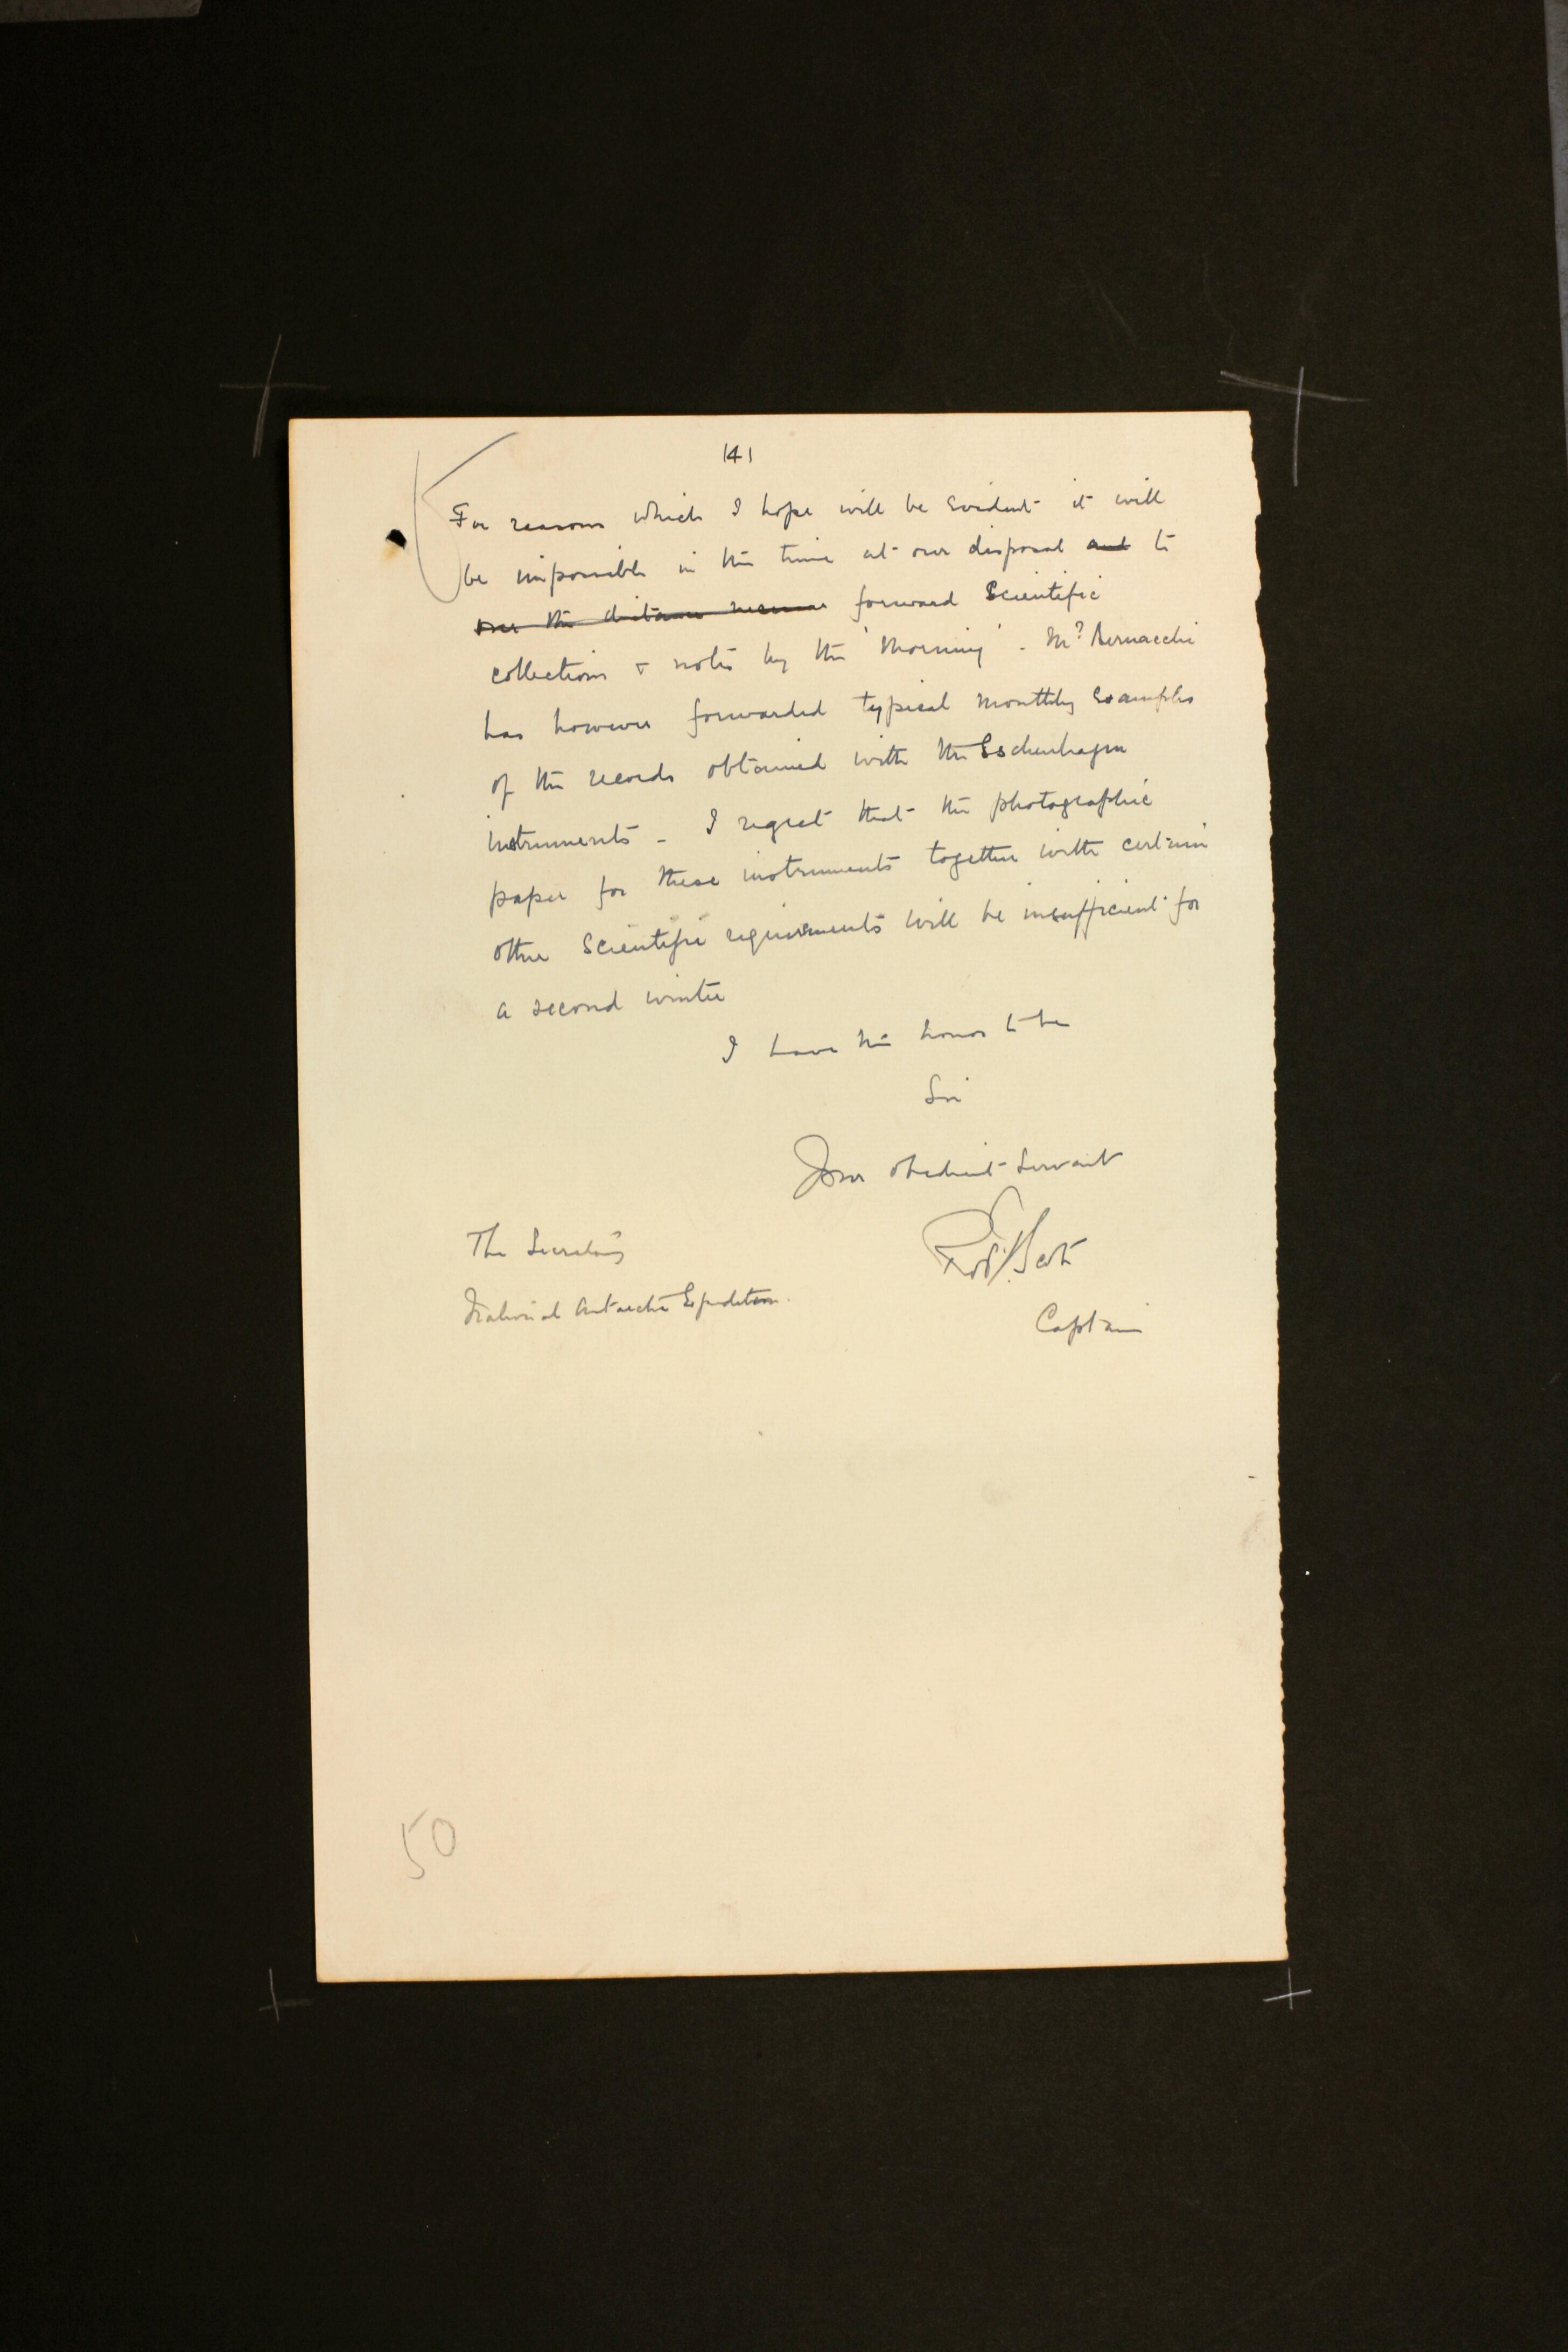 141
For reasons which I hope will be evident it will
be impossible in the time at our disposal and to
over the distance forward Scientific
collections & notes by the 'Morning' - Mr Bernacchi
has however forwarded typical monthly examples
of the records obtained with the Eschenhagen
instruments - I regret that the photographic
paper for these instruments together with certain
other scientific requirements will be insufficient for
a second winter
I have the honor to be
Sir
Your obedient Servant
The Secretary
Robt F. Scott
National Antarctic Expedition.
Captain
50